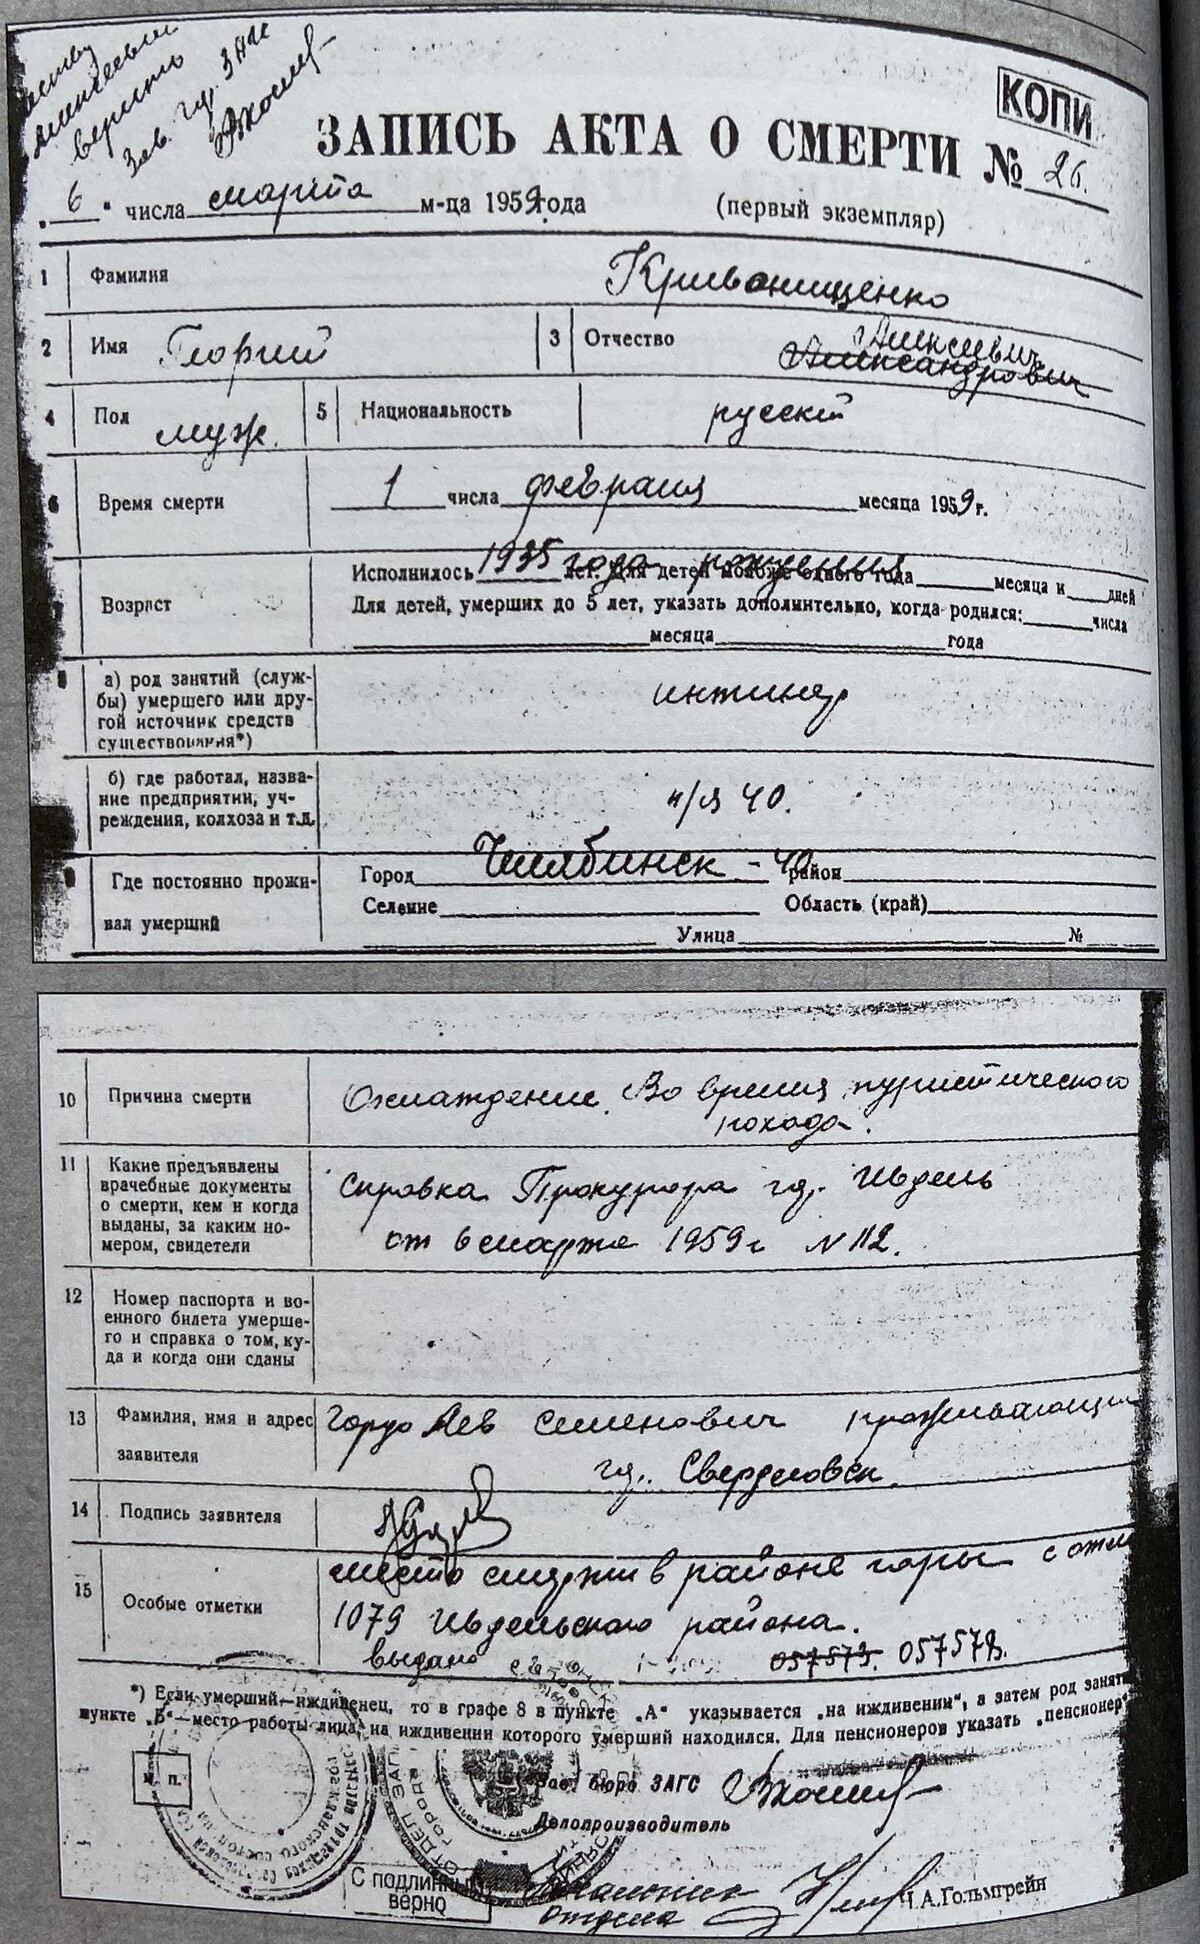 отчеству
Алексеевич
верить
Зав. гр. ЗАГС
КОПИ
ЗАПИСЬ АКТА О СМЕРТИ № 26.
"6" числа марта м-ца 1959 года (первый экземпляр)
1 Фамилия Кривонищенко
2 Имя Георгий 3 Отчество Алексеевич
Александрович
4 Пол муж. 5 Национальность русский
6 Время смерти 1 числа февраля месяца 1959 г.
Исполнилось 1935 года рождения лет. Для детей моложе одного года месяца и дней
Возраст Для детей, умерших до 5 лет, указать дополнительно, когда родился: числа
месяца года
а) род занятий (служ-
бы) умершего или дру-
гой источник средств
существования*)
инжинер
б) где работал, назва-
ние предприятии, уч-
реждения, колхоза и т.д.
п/я 40.
Где постоянно прожи-
вал умерший
Город Челябинск - 40 район
Селение Область (край)
Улица №
10 Причина смерти Охлаждение Во время туристического
похода.
11 Какие предъявлены
врачебные документы
о смерти, кем и когда
выданы, за каким но-
мером, свидетели
Справка Прокурора гр. Ивдель
от 6 марта 1959 г N 112.
12 Номер паспорта и во-
енного билета умерше-
го и справка о том, ку-
да и когда они сданы
13 Фамилия, имя и адрес
заявителя
Гордо Лев Семенович проживающи
гр. Свердловск
14 Подпись заявителя
15 Особые отметки
место смерти в районе горы с отм
1079 Ивдельского района.
выдано 057573. 057578.
*) Если умерший—иждивенец, то в графе 8 в пункте „А“ указывается „на иждивении“, а затем род заняти
пункте „Б“—место работы лица, на иждивении которого умерший находился. Для пенсионеров указать „пенсионер“
М. П.
Зав. бюро ЗАГС
Делопроизводитель
С подлинным
верно
Начальник
отдела
Л.А.Гольмгрейн